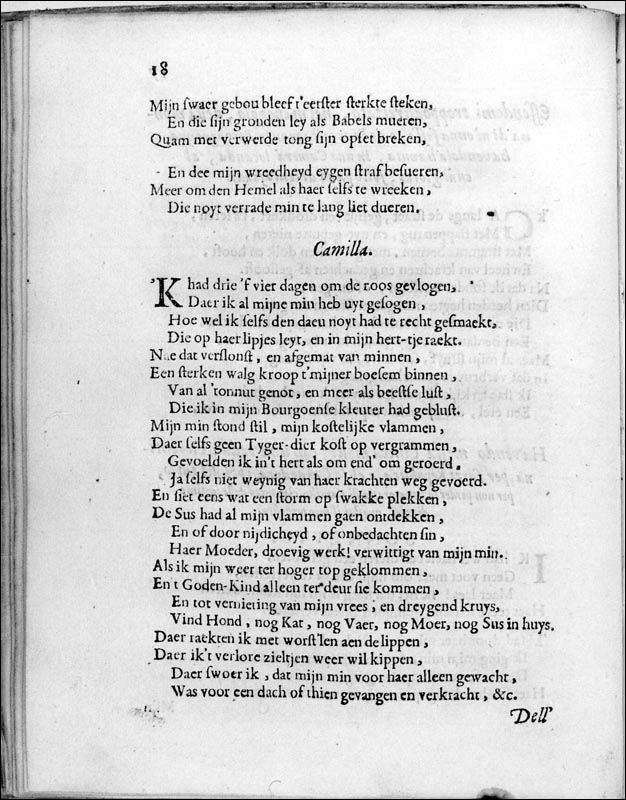 18
Mijn swaer gebou bleef t'eerster sterkte steken,
En die sijn gronden ley als Babels mueren,
Quam met verwerde tong sijn opset breken,
En dee mijn wreedheyd eygen straf besueren,
Meer om den Hemel als haer selfs te wreeken,
Die noyt verrade min te lang liet dueren.
Camilla.
'K had drie 'f vier dagen om de roos gevlogen,
Daer ik al mijne min heb uyt gesogen,
Hoe wel ik selfs den daeu noyt had te recht gesmaekt,
Die op haer lipjes leyt, en in mijn hert-tje raekt.
Nae dat verslonst, en afgemat van minnen,
Een sterken walg kroop t'mijner boesem binnen,
Van al 'tonnut genot, en meer als beestse lust,
Die ik in mijn Bourgoense kleuter had geblust.
Mijn min stond stil, mijn kostelijke vlammen,
Daer selfs geen Tyger-dier kost op vergrammen,
Gevoelden ik in't hert als om end' om geroerd,
Ja selfs niet weynig van haer krachten weg gevoerd.
En siet eens wat een storm op swakke plekken,
De Sus had al mijn vlammen gaen ontdekken,
En of door nijdicheyd, of onbedachten sin,
Haer Moeder, droevig werk! verwittigt van mijn min.
Als ik mijn weer ter hoger top geklommen,
En 't Goden-Kind alleen ter deur sie kommen,
En tot verniering van mijn vrees, en dreygend kruys,
Vind Hond, nog Kat, nog Vaer, nog Moer, nog Sus in huys.
Daer raekten ik met worst'len aen de lippen,
Daer ik't verlore zieltjen weer wil kippen,
Daer swoer ik, dat mijn min voor haer alleen gewacht,
Was voor een dach of thien gevangen en verkracht, &c.
Dell'